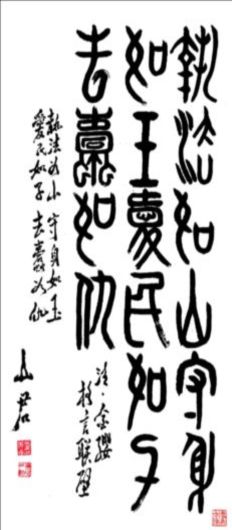 執法如山守身
如玉愛民如子
去蠹如仇
注·金纓
格言聯璧
執法如山 守身如玉
愛民如子 去蠹如仇
山君